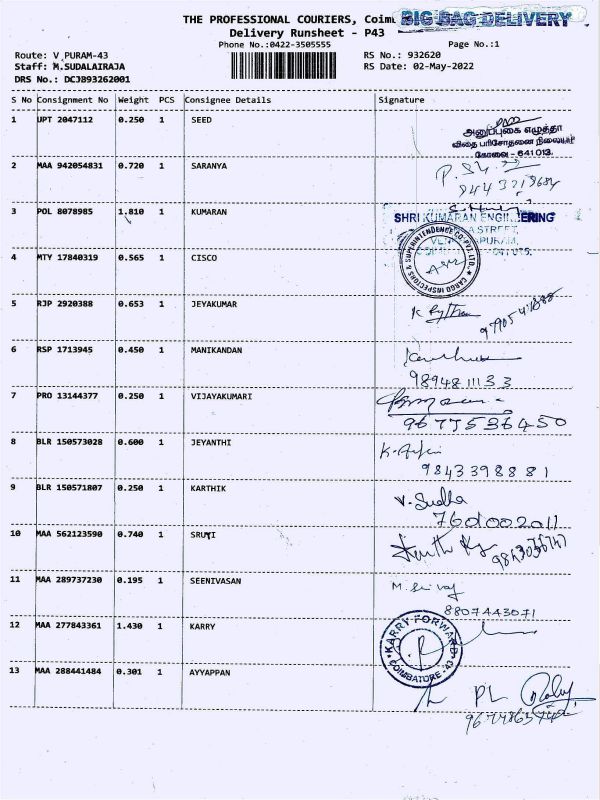 THE PROFESSIONAL COURIERS,
BIG BAG DELIVERY
Delivery Runsheet - P43
Phone No.:0422-3505555
Page No.:1
Route: V PURAM-43
RS No.: 932620
Staff: M.SUDALAIRAJA
RS Date: 02-May-2022
DRS No.: DCJ893262001
S No Consignment No Weight PCS Consignee Details Signature
1 UPT 2047112 0.250 1 SEED
அனுப்புகை எழுத்தா
விதை பரிசோதனை நிலையம்
கோவை - 641 013.
2 MAA 942054831 0.720 1 SARANYA
3 POL 8078985 1.810 1 KUMARAN
SHRI KUMARAN ENGINEERING
STREET,
4 MTY 17840319 0.565 1 CISCO
CARGO INSPECTORS & SUPERINTENDENCE CO. PVT. LTD.
5 RJP 2920388 0.653 1 JEYAKUMAR
6 RSP 1713945 0.450 1 MANIKANDAN
9894811133
7 PRO 13144377 0.250 1 VIJAYAKUMARI
9677536450
8 BLR 150573028 0.600 1 JEYANTHI
9843398881
9 BLR 150571807 0.250 1 KARTHIK
V. Sudha
7601002011
10 MAA 562123590 0.740 1 SRUTI
11 MAA 289737230 0.195 1 SEENIVASAN
8807443071
12 MAA 277843361 1.430 1 KARRY
KARRY FORWARD
COIMBATORE - 43
13 MAA 288441484 0.301 1 AYYAPPAN
PL